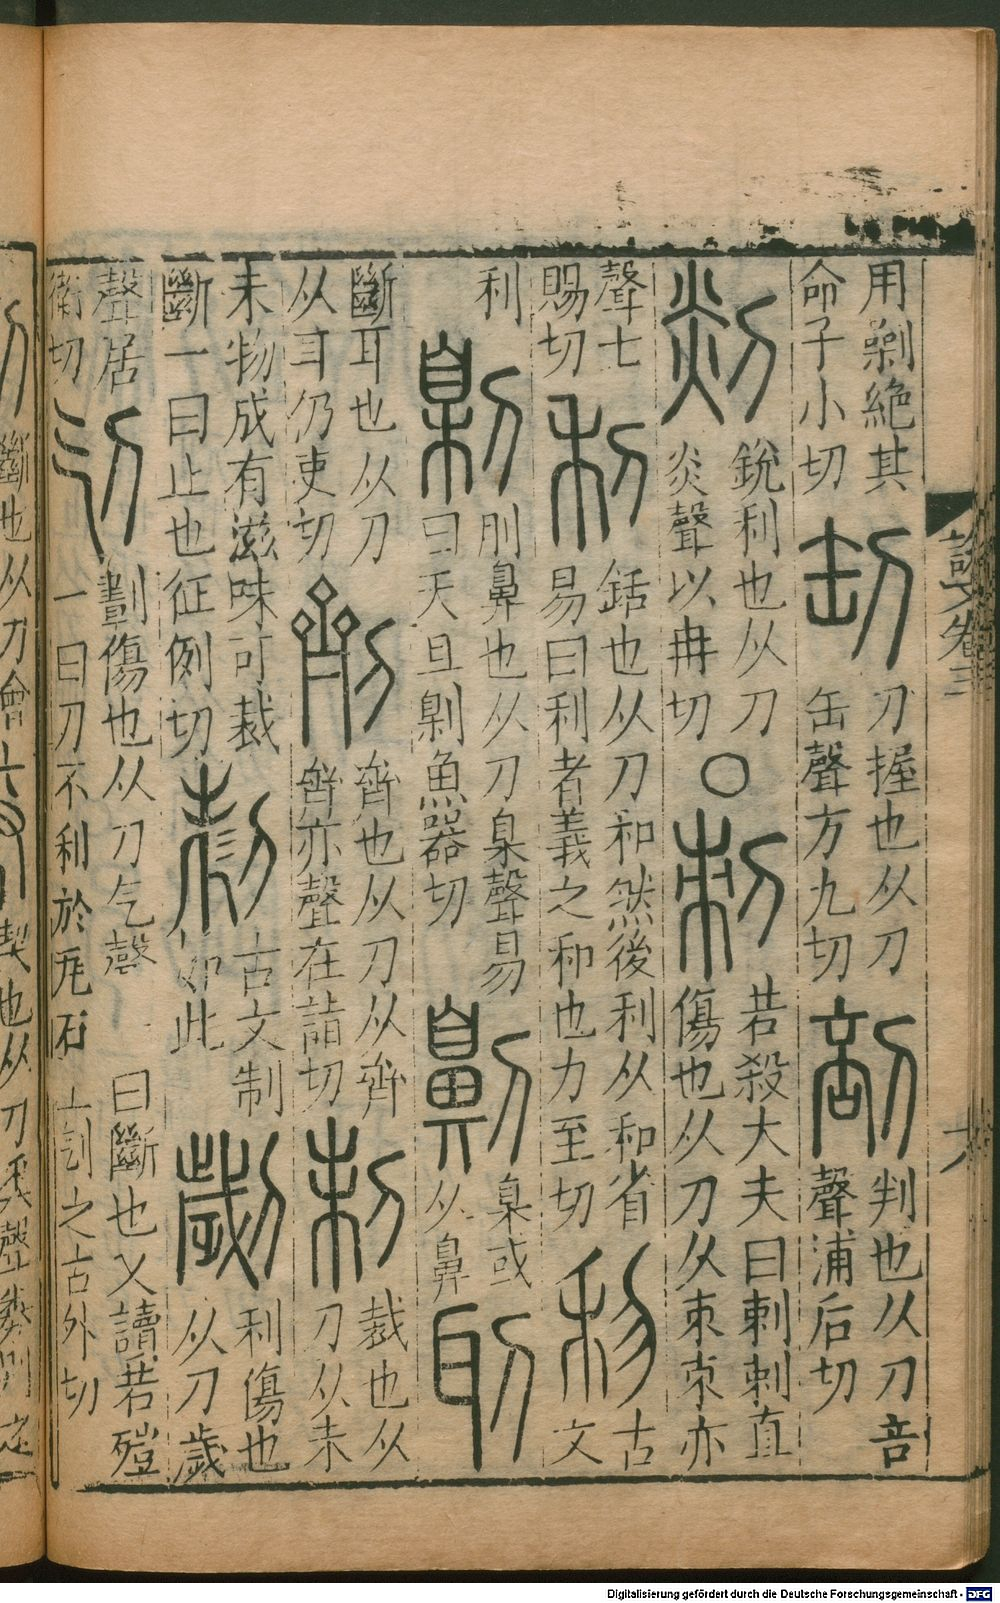 用剿絶其
命子小切
𠚼
刀握也从刀
缶聲方九切
剖
判也从刀咅
聲浦后切
剡
銳利也从刀
炎聲以冉切
○
刺
君殺大夫曰刺刺直
傷也从刀从朿朿亦
聲七
賜切
利
銛也从刀和然後利从和省
易曰利者義之和也力至切
古
文
劓
刖鼻也从刀臬聲易
曰天且劓魚器切
劓
臬或
从鼻
刵
斷耳也从刀
从耳仍吏切
劑
齊也从刀从齊
齊亦聲在詣切
制
裁也从
刀从未
未物成有滋味可裁
斷一曰止也征例切
古文制
如此
劌
利傷也
从刀歲
聲居
衛切
刉
劃傷也从刀气聲
一曰刀不利於瓦石
曰斷也又讀若殪
上刉之古外切
說文卷三
斷也从刀會
契也从刀㐱聲
Digitalisierung gefördert durch die Deutsche Forschungsgemeinschaft - DFG